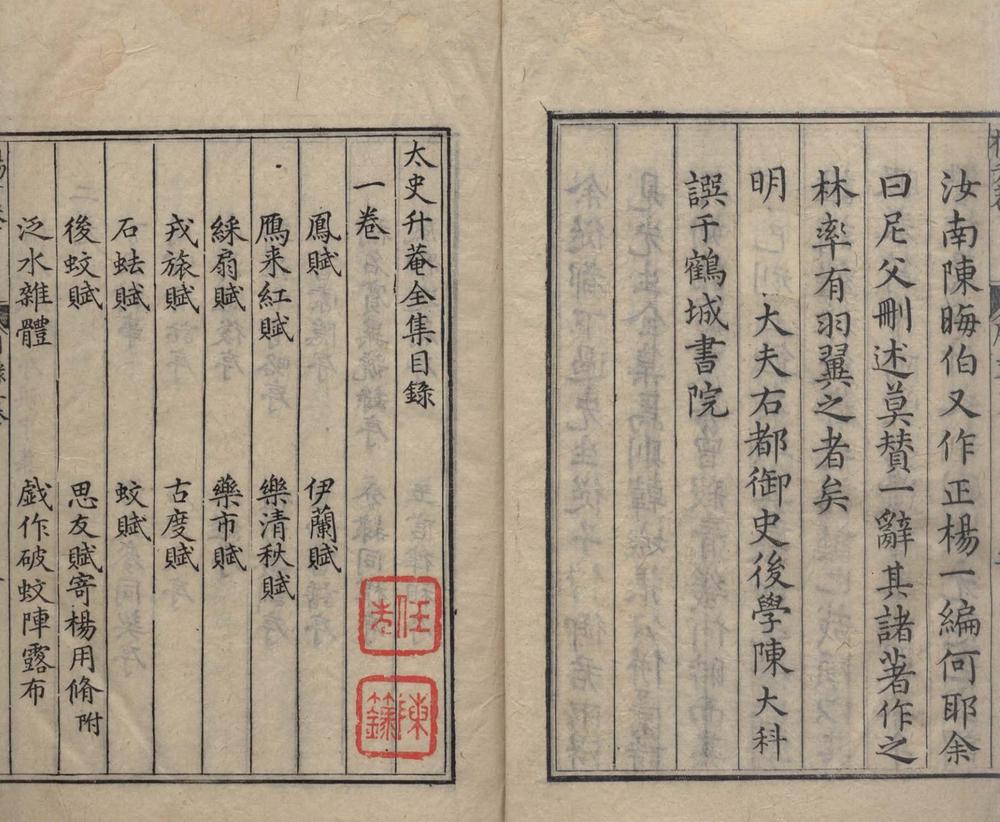 汝南陳晦伯又作正楊一編何耶余
曰尼父刪述莫贊一辭其諸著作之
林率有羽翼之者矣
明　大夫右都御史後學陳大科
譔于鶴城書院
太史升菴全集目錄
一卷
鳳賦　伊蘭賦
鴈来紅賦　樂清秋賦
綵扇賦　藥市賦
戎旅賦　古度賦
石蛣賦　蚊賦
後蚊賦　思友賦寄楊用脩附
泛水雜體　戯作破蚊陣露布